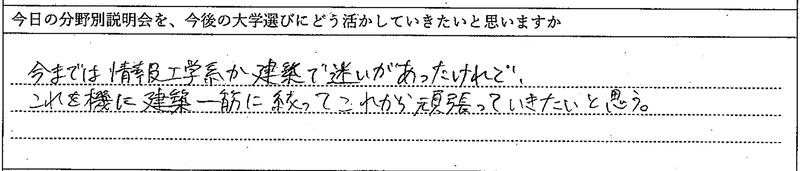 今日の分野別説明会を、今後の大学選びにどう活かしていきたいと思いますか
今までは情報工学系か建築で迷いがあったけれど、
これを機に建築一筋に絞ってこれから頑張っていきたいと思う。